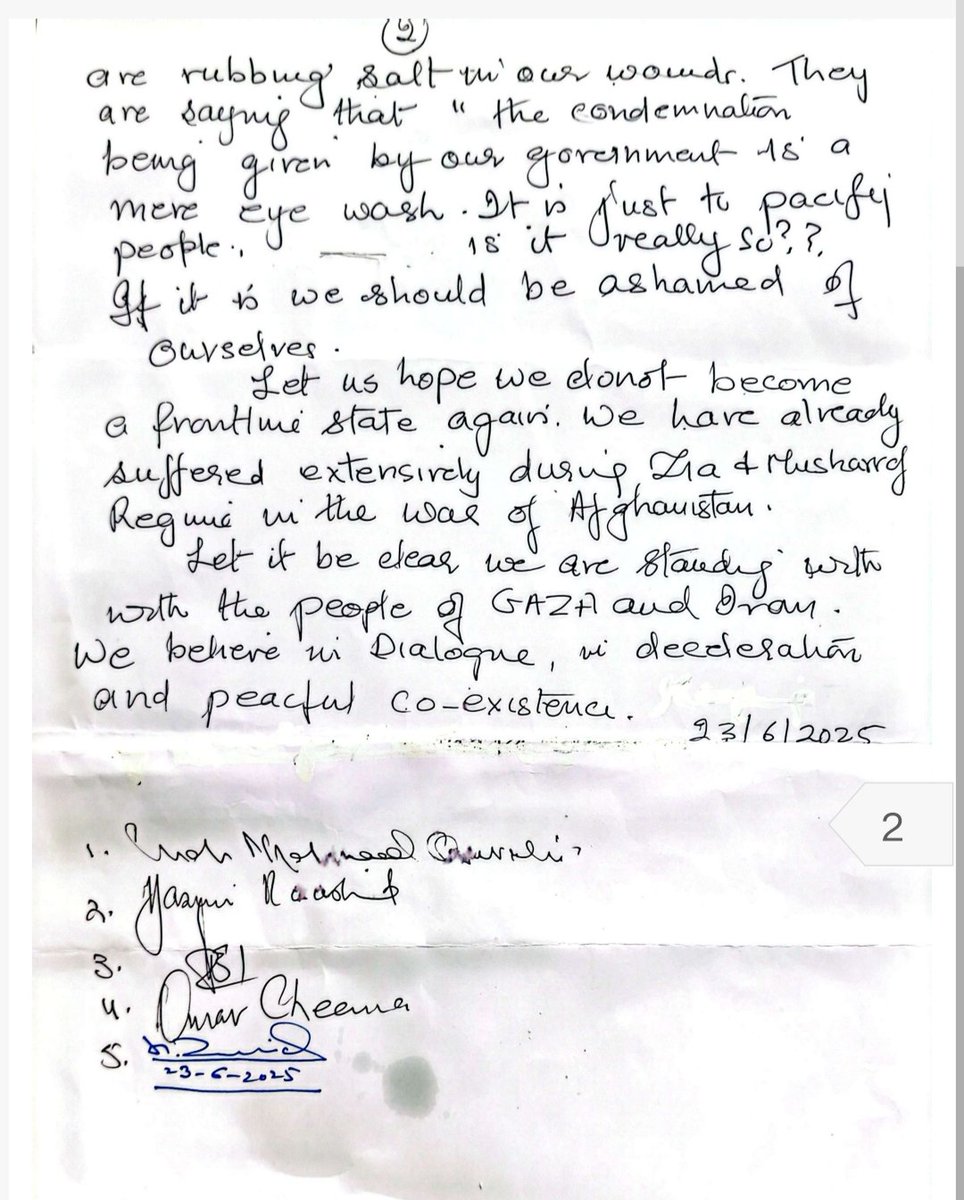 (2)
are rubbing salt in our wounds. They
are saying that " the condemnation
being given by our government is a
mere eye wash. It is just to pacify
people., ____ is it really so??.
If it is we should be ashamed of
ourselves.
Let us hope we donot become
a frontline state again. We have already
suffered extensively during Zia & Musharraf
Regime in the war of Afghanistan.
Let it be clear we are standing with
with the people of GAZA and Iran.
We believe in Dialogue, in
and peacful co-existence.
23/6/2025
2
1. Shah Mahmood Qureshi
2. Yasmin Raashid
3.
4. Omar Cheema
5.
23-6-2025